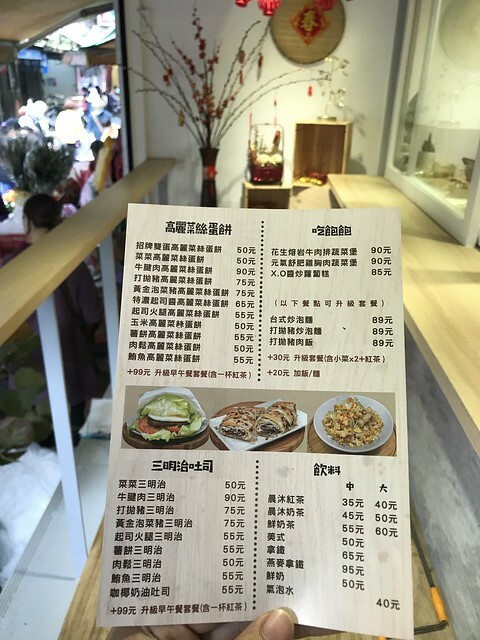 春
高麗菜絲蛋餅
招牌雙蛋高麗菜絲蛋餅 50元
菜菜高麗菜絲蛋餅 50元
牛腱肉高麗菜絲蛋餅 90元
打拋豬高麗菜絲蛋餅 75元
黃金泡菜豬高麗菜絲蛋餅 75元
特濃起司醬高麗菜絲蛋餅 65元
起司火腿高麗菜絲蛋餅 55元
玉米高麗菜絲蛋餅 50元
薯餅高麗菜絲蛋餅 55元
肉鬆高麗菜絲蛋餅 50元
鮪魚高麗菜絲蛋餅 55元
+99元 升級早午餐套餐(含一杯紅茶)
吃飽飽
花生熔岩牛肉排蔬菜堡 90元
元氣舒肥雞胸肉蔬菜堡 90元
X.O醬炒蘿蔔糕 85元
(以下餐點可升級套餐)
台式炒泡麵 89元
打拋豬炒泡麵 89元
打拋豬肉飯 89元
+30元 升級套餐(含小菜x2+紅茶)
+20元 加飯/麵
三明治吐司
菜菜三明治 50元
牛腱肉三明治 90元
打拋豬三明治 75元
黃金泡菜豬三明治 75元
起司火腿三明治 55元
薯餅三明治 55元
肉鬆三明治 50元
鮪魚三明治 55元
咖椰奶油吐司 55元
+99元 升級早午餐套餐(含一杯紅茶)
飲料
中 大
晨沐紅茶 35元 40元
晨沐奶茶 45元 50元
鮮奶茶 55元 60元
美式 50元
拿鐵 65元
燕麥拿鐵 95元
鮮奶 50元
氣泡水 40元